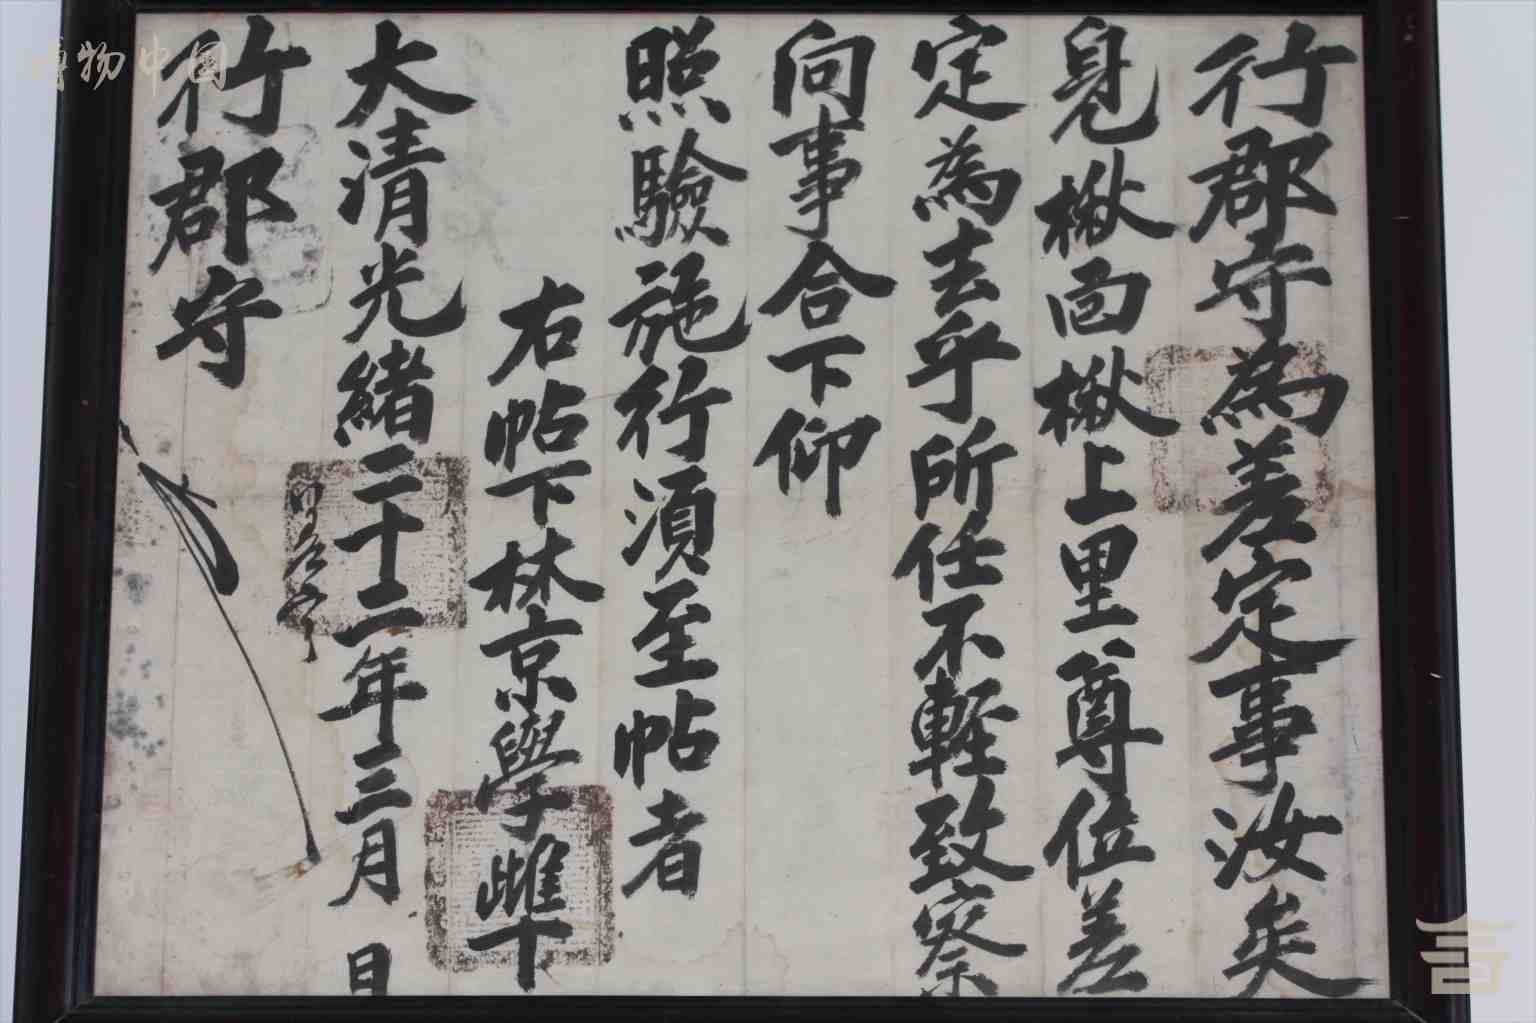 行郡守為差定事汝矣
身楸面楸上里尊位差
定為去乎所任不軽致察
向事合下仰
照驗施行須至帖者
右帖下林京學 下
大清光緒二十二年三月 日
行郡守
博物中国